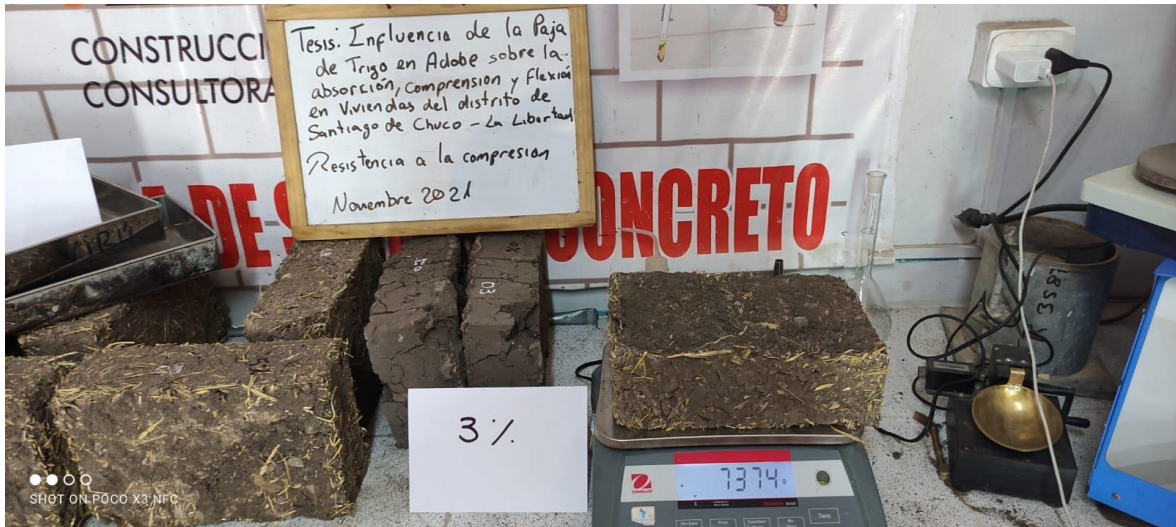 CONSTRUCCI
CONSULTORA
Tesis: Influencia de la Paja
de Trigo en Adobe sobre la
absorción, comprension y Flexión
en Viviendas del distrito de
Santiago de Chuco - La Libertad
Resistencia a la compresion
Novembre 2021
DE S
CONCRETO
03
3 %
OHAUS
7374
Tare
SHOT ON POCO X3 NFC